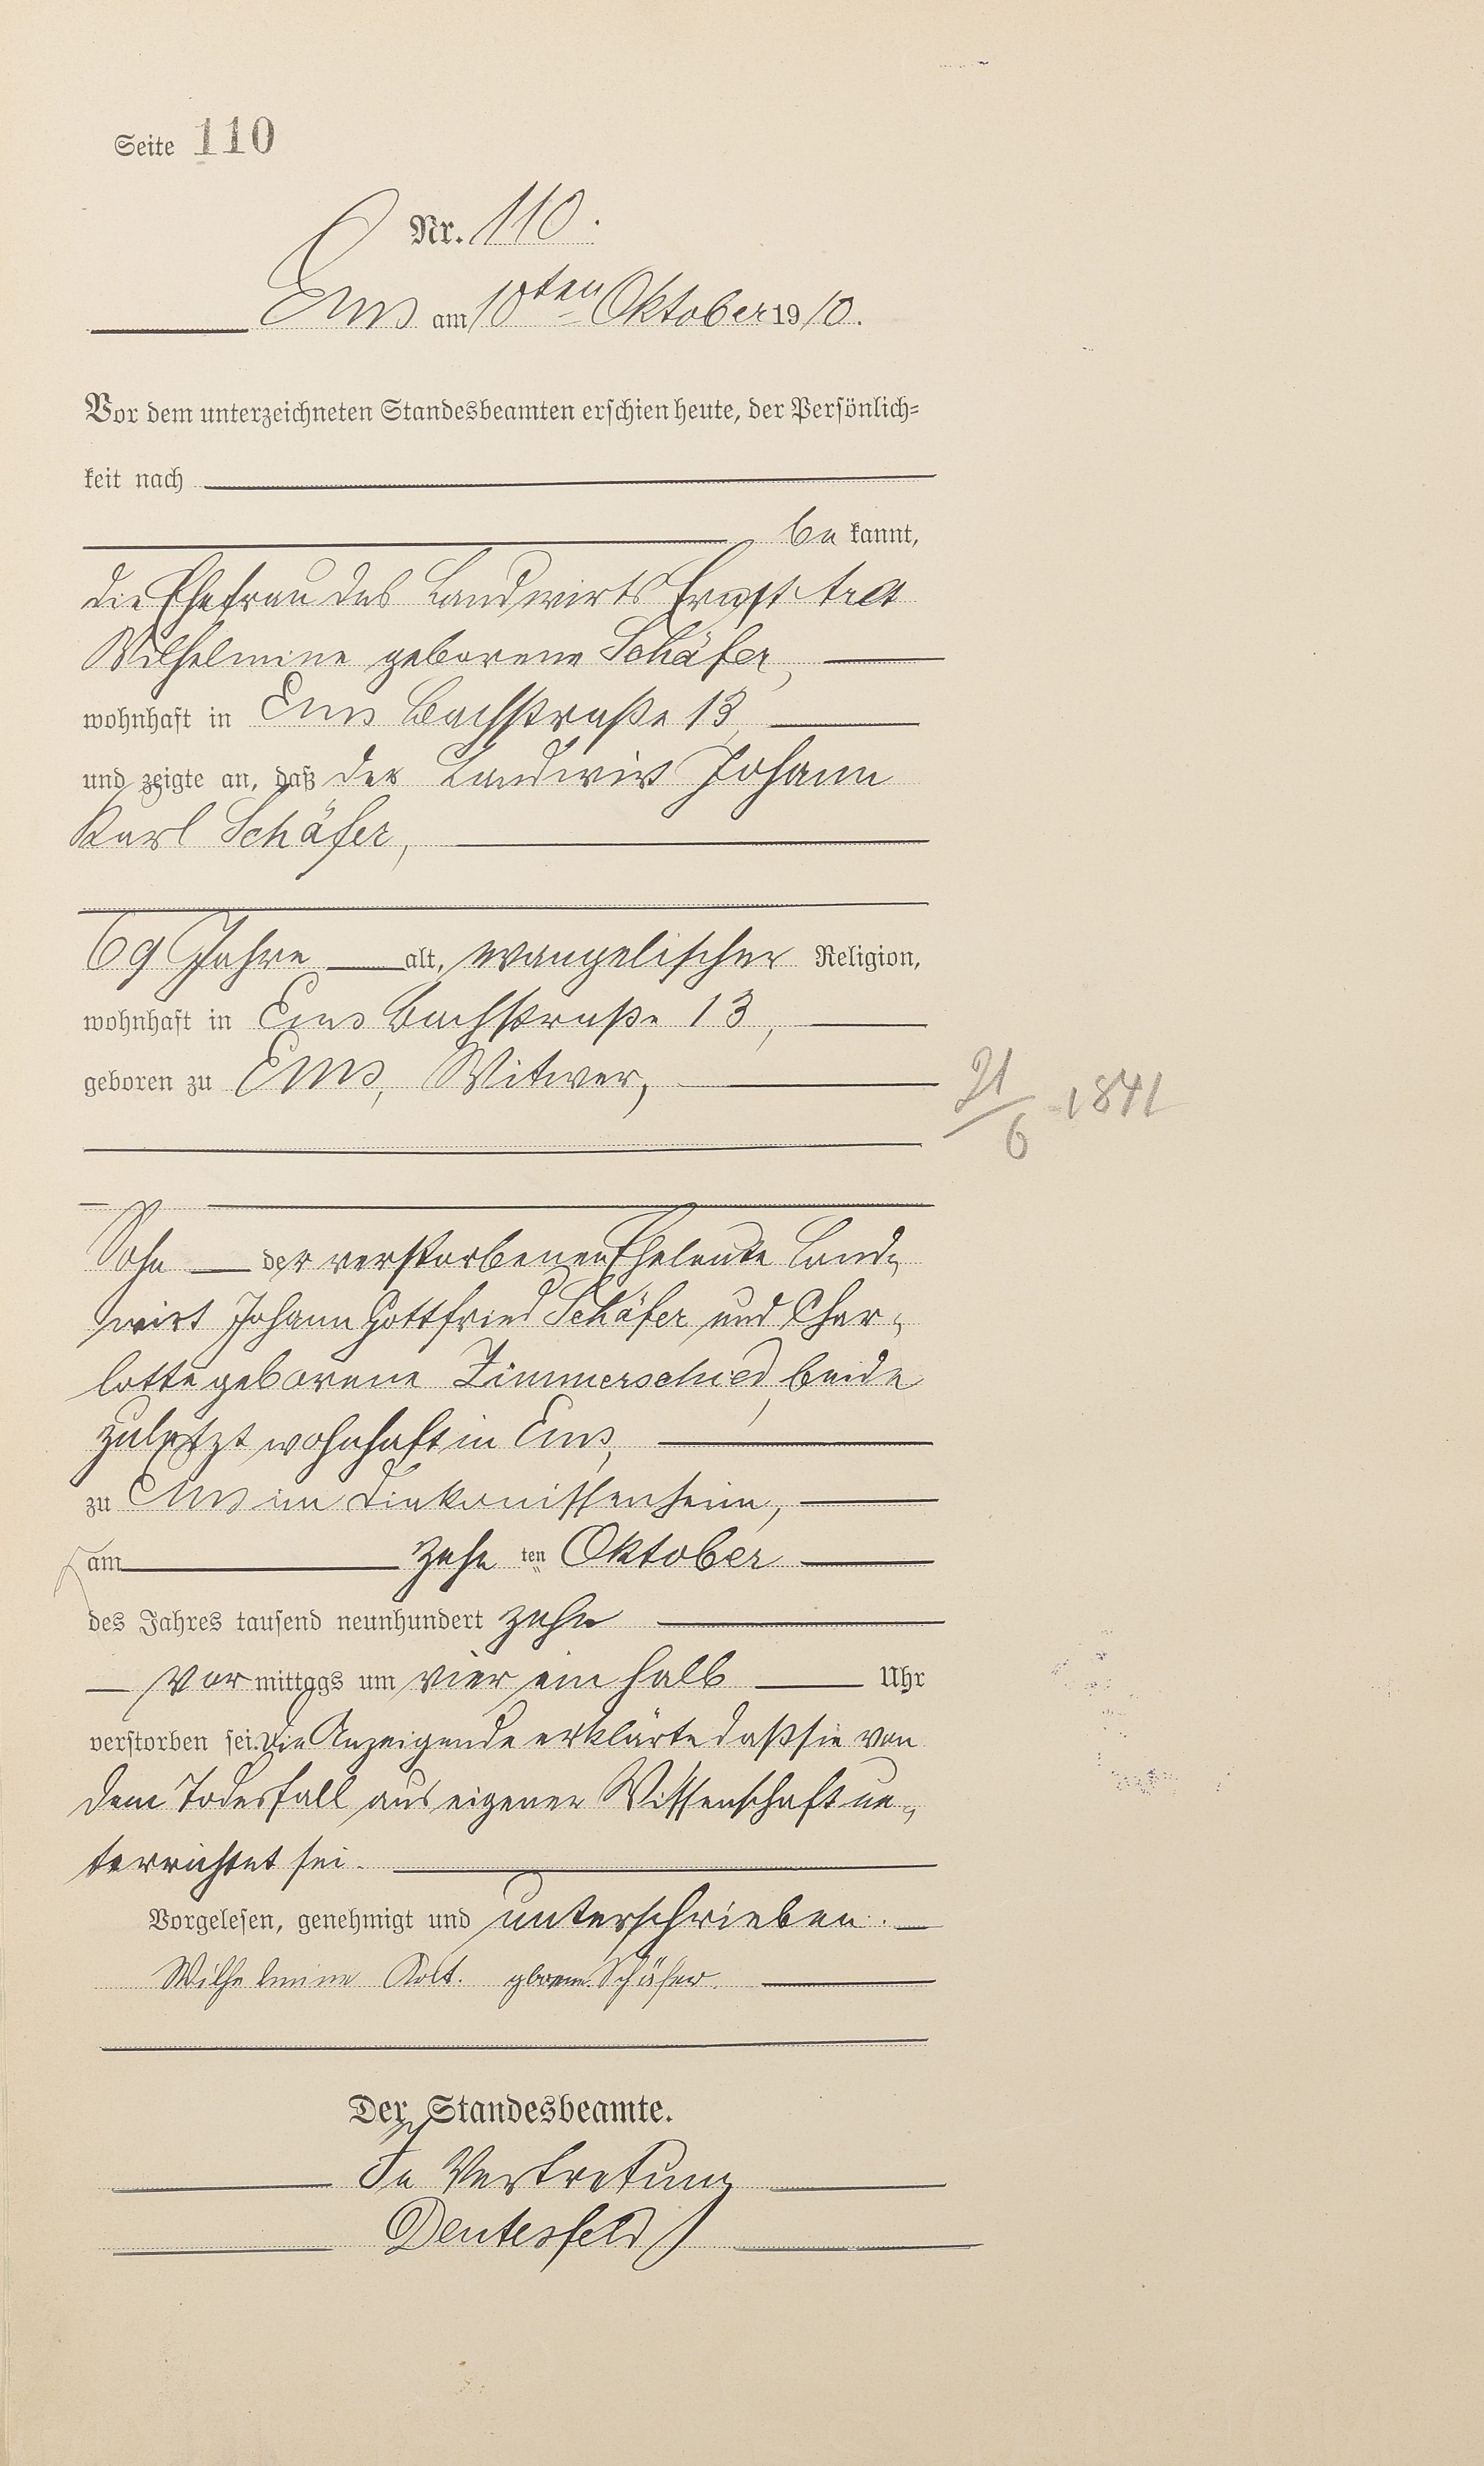 Seite 110
Nr. 110.
Ems am 10ten Oktober 1910.
Vor dem unterzeichneten Standesbeamten erschien heute, der Persönlich-
keit nach
be kannt,
die Ehefrau des Landwirts Ernst
Wilhelmine geborene Schäfer,
wohnhaft in Ems Bachstraße 13,
und zeigte an, daß der Landwirt Johann
Karl Schäfer,
69 Jahre alt, evangelischer Religion,
wohnhaft in Ems Bachstraße 13,
geboren zu Ems, Witwer,
21/6 1841
Sohn der verstorbenen Eheleute Land-
wirt Johann Gottfried Schäfer und Char-
lotte geborene Zimmerschied, beide
zuletzt wohnhaft in Ems,
zu Ems im Diakonissenheim,
am zehn ten Oktober
des Jahres tausend neunhundert zehn
Vor mittags um vier ein halb Uhr
verstorben sei. Die Anzeigende erklärte daß sie von
dem Todesfall aus eigener Wissenschaft un-
terrichtet sei.
Vorgelesen, genehmigt und unterschrieben.
Wilhelmine geborene Schäfer.
Der Standesbeamte.
In Vertretung
Deutesfeld